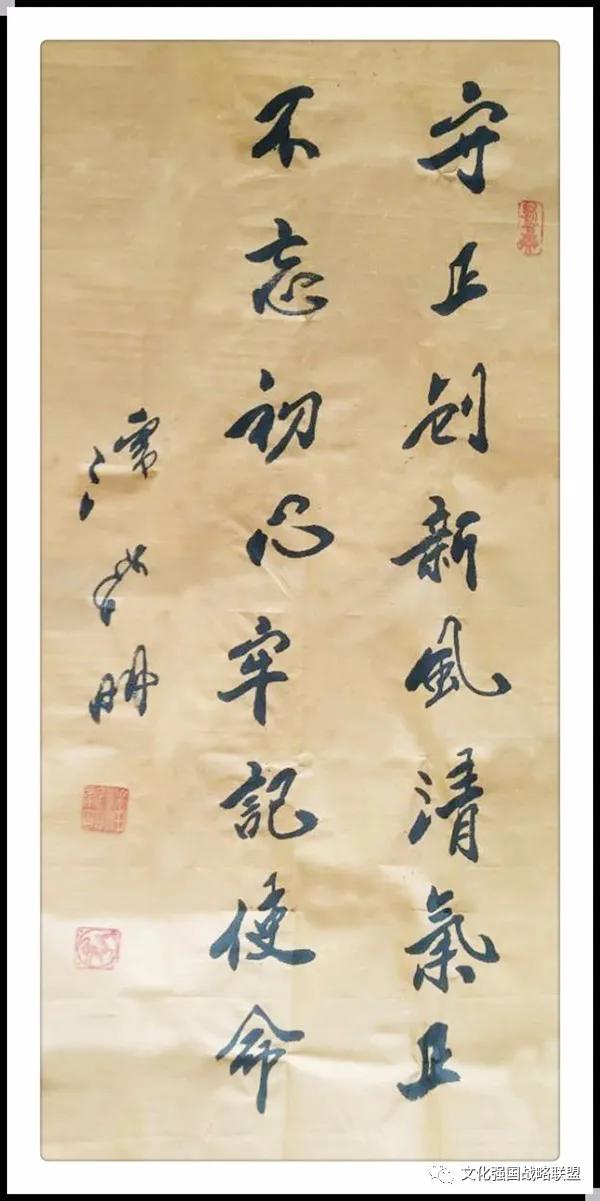 守正创新風清氣正
不忘初心牢記使命
文化强国战略联盟